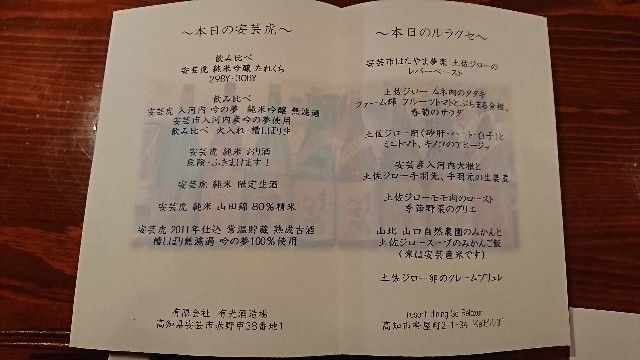 ～本日の安芸虎～
飲み比べ
安芸虎 純米吟醸 たれくち
29BY・30BY
飲み比べ
安芸虎 入河内 吟の夢 純米吟醸 無濾過
安芸市入河内産吟の夢使用
飲み比べ 火入れ・槽しぼり生
安芸虎 純米 おり酒
危険・ふきまけます！
安芸虎 純米 限定生酒
安芸虎 純米 山田錦 80％精米
安芸虎 2011年仕込 常温貯蔵 熟成古酒
槽しぼり無濾過 吟の夢100％使用
有限会社 有光酒造場
高知県安芸市赤野甲38番地1
～本日のルラクセ～
安芸市はたやま夢楽 土佐ジローの
レバーペースト
土佐ジロー ムネ肉のタタキ
ファーム輝 フルーツトマトとぶちまる金柑、
春菊のサラダ
土佐ジロー(砂肝・ハート・白子)と
ミニトマト、キノコのアヒージョ
安芸産入河内大根と
土佐ジロー手羽先、手羽元の生姜煮
土佐ジローモモ肉のロースト
季節野菜のグリエ
山北 山口自然農園のみかんと
土佐ジロースープのみかんご飯
(米は安芸産米です)
土佐ジロー卵のクレームブリュレ
resort dining Se Relaxer
高知市帯屋町2-1-34